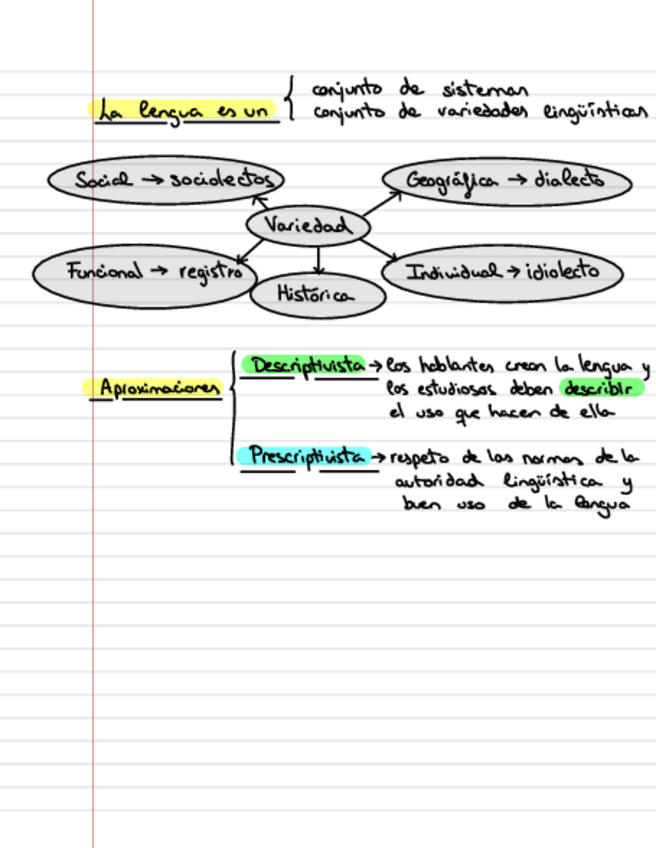 La lengua es un { conjunto de sistemas
conjunto de variedades lingüísticas
Social → sociolectos
Geográfica → dialecto
Variedad
Funcional → registro
Individual → idiolecto
Histórica
Descriptivista → los hablantes crean la lengua y
Aproximaciones { los estudiosos deben describir
el uso que hacen de ella
Prescriptivista → respeto de las normas de la
autoridad lingüística y
buen uso de la lengua